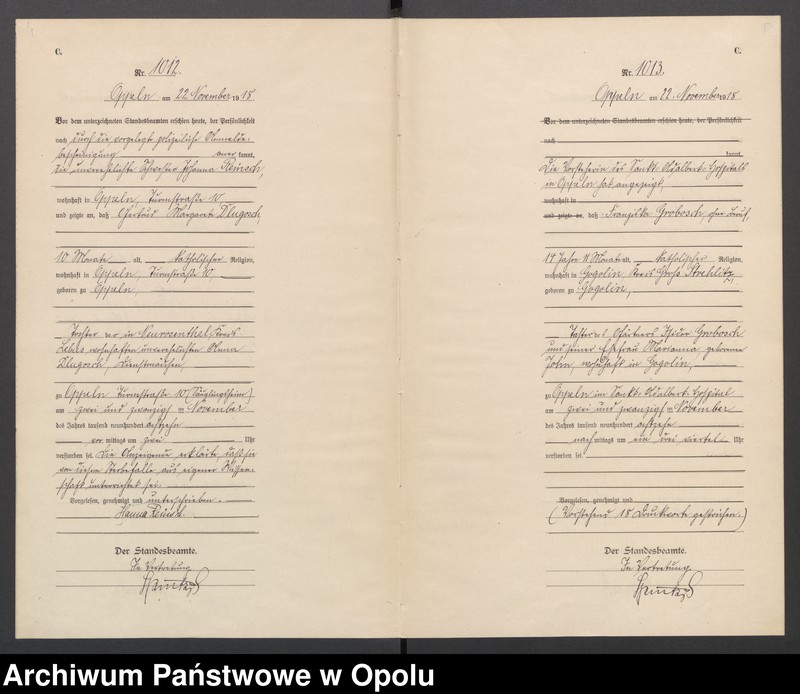 C.
Nr. 1012.
Oppeln am 22 November 1918
Vor dem unterzeichneten Standesbeamten erschien heute, der Persönlichkeit
nach durch die vorgelegte polizeiliche Anmelde-
bescheinigung kannt,
die unverehelichte Schwester Johanna Reinsch,
wohnhaft in Oppeln, Turmstraße 10,
und zeigte an, daß Margarete Dlugosch,
10 Monate alt, katholischer Religion,
wohnhaft in Oppeln, Turmstraße 10,
geboren zu Oppeln,
Tochter der in Neurosenthal, Kreis
wohnhaften unverehelichten Anna
Dlugosch, Dienstmädchen,
zu Oppeln Turmstraße 10 (Säuglingsheim)
am zwei und zwanzigsten November
des Jahres tausend neunhundert achtzehn
vormittags um zwei Uhr
verstorben sei. Die Anzeigende erklärte, daß sie
von diesem Sterbefalle aus eigener Wissen-
schaft unterrichtet sei.
Vorgelesen, genehmigt und unterschrieben.
Hanna Reinsch.
Der Standesbeamte.
In Vertretung
C.
Nr. 1013.
Oppeln am 22. November 1918
Vor dem unterzeichneten Standesbeamten erschien heute, der Persönlichkeit
nach
kannt,
Die Vorsteherin des Sankt Adalbert-Hospitals
in Oppeln hat angezeigt,
wohnhaft in
und zeigte an, daß Franziska Grobosch, ohne Beruf,
19 Jahre 11 Monate alt, katholischer Religion,
wohnhaft in Gogolin, Kreis Groß Strehlitz,
geboren zu Gogolin,
Tochter des Gärtners Isidor Grobosch
und seiner Ehefrau Marianna geborene
John, wohnhaft in Gogolin,
zu Oppeln im Sankt Adalbert-Hospital
am zwei und zwanzigsten November
des Jahres tausend neunhundert achtzehn
nachmittags um ein drei viertel Uhr
verstorben sei
Vorgelesen, genehmigt und
(Vorstehend 18 Druckworte gestrichen.)
Der Standesbeamte.
In Vertretung
Archiwum Państwowe w Opolu